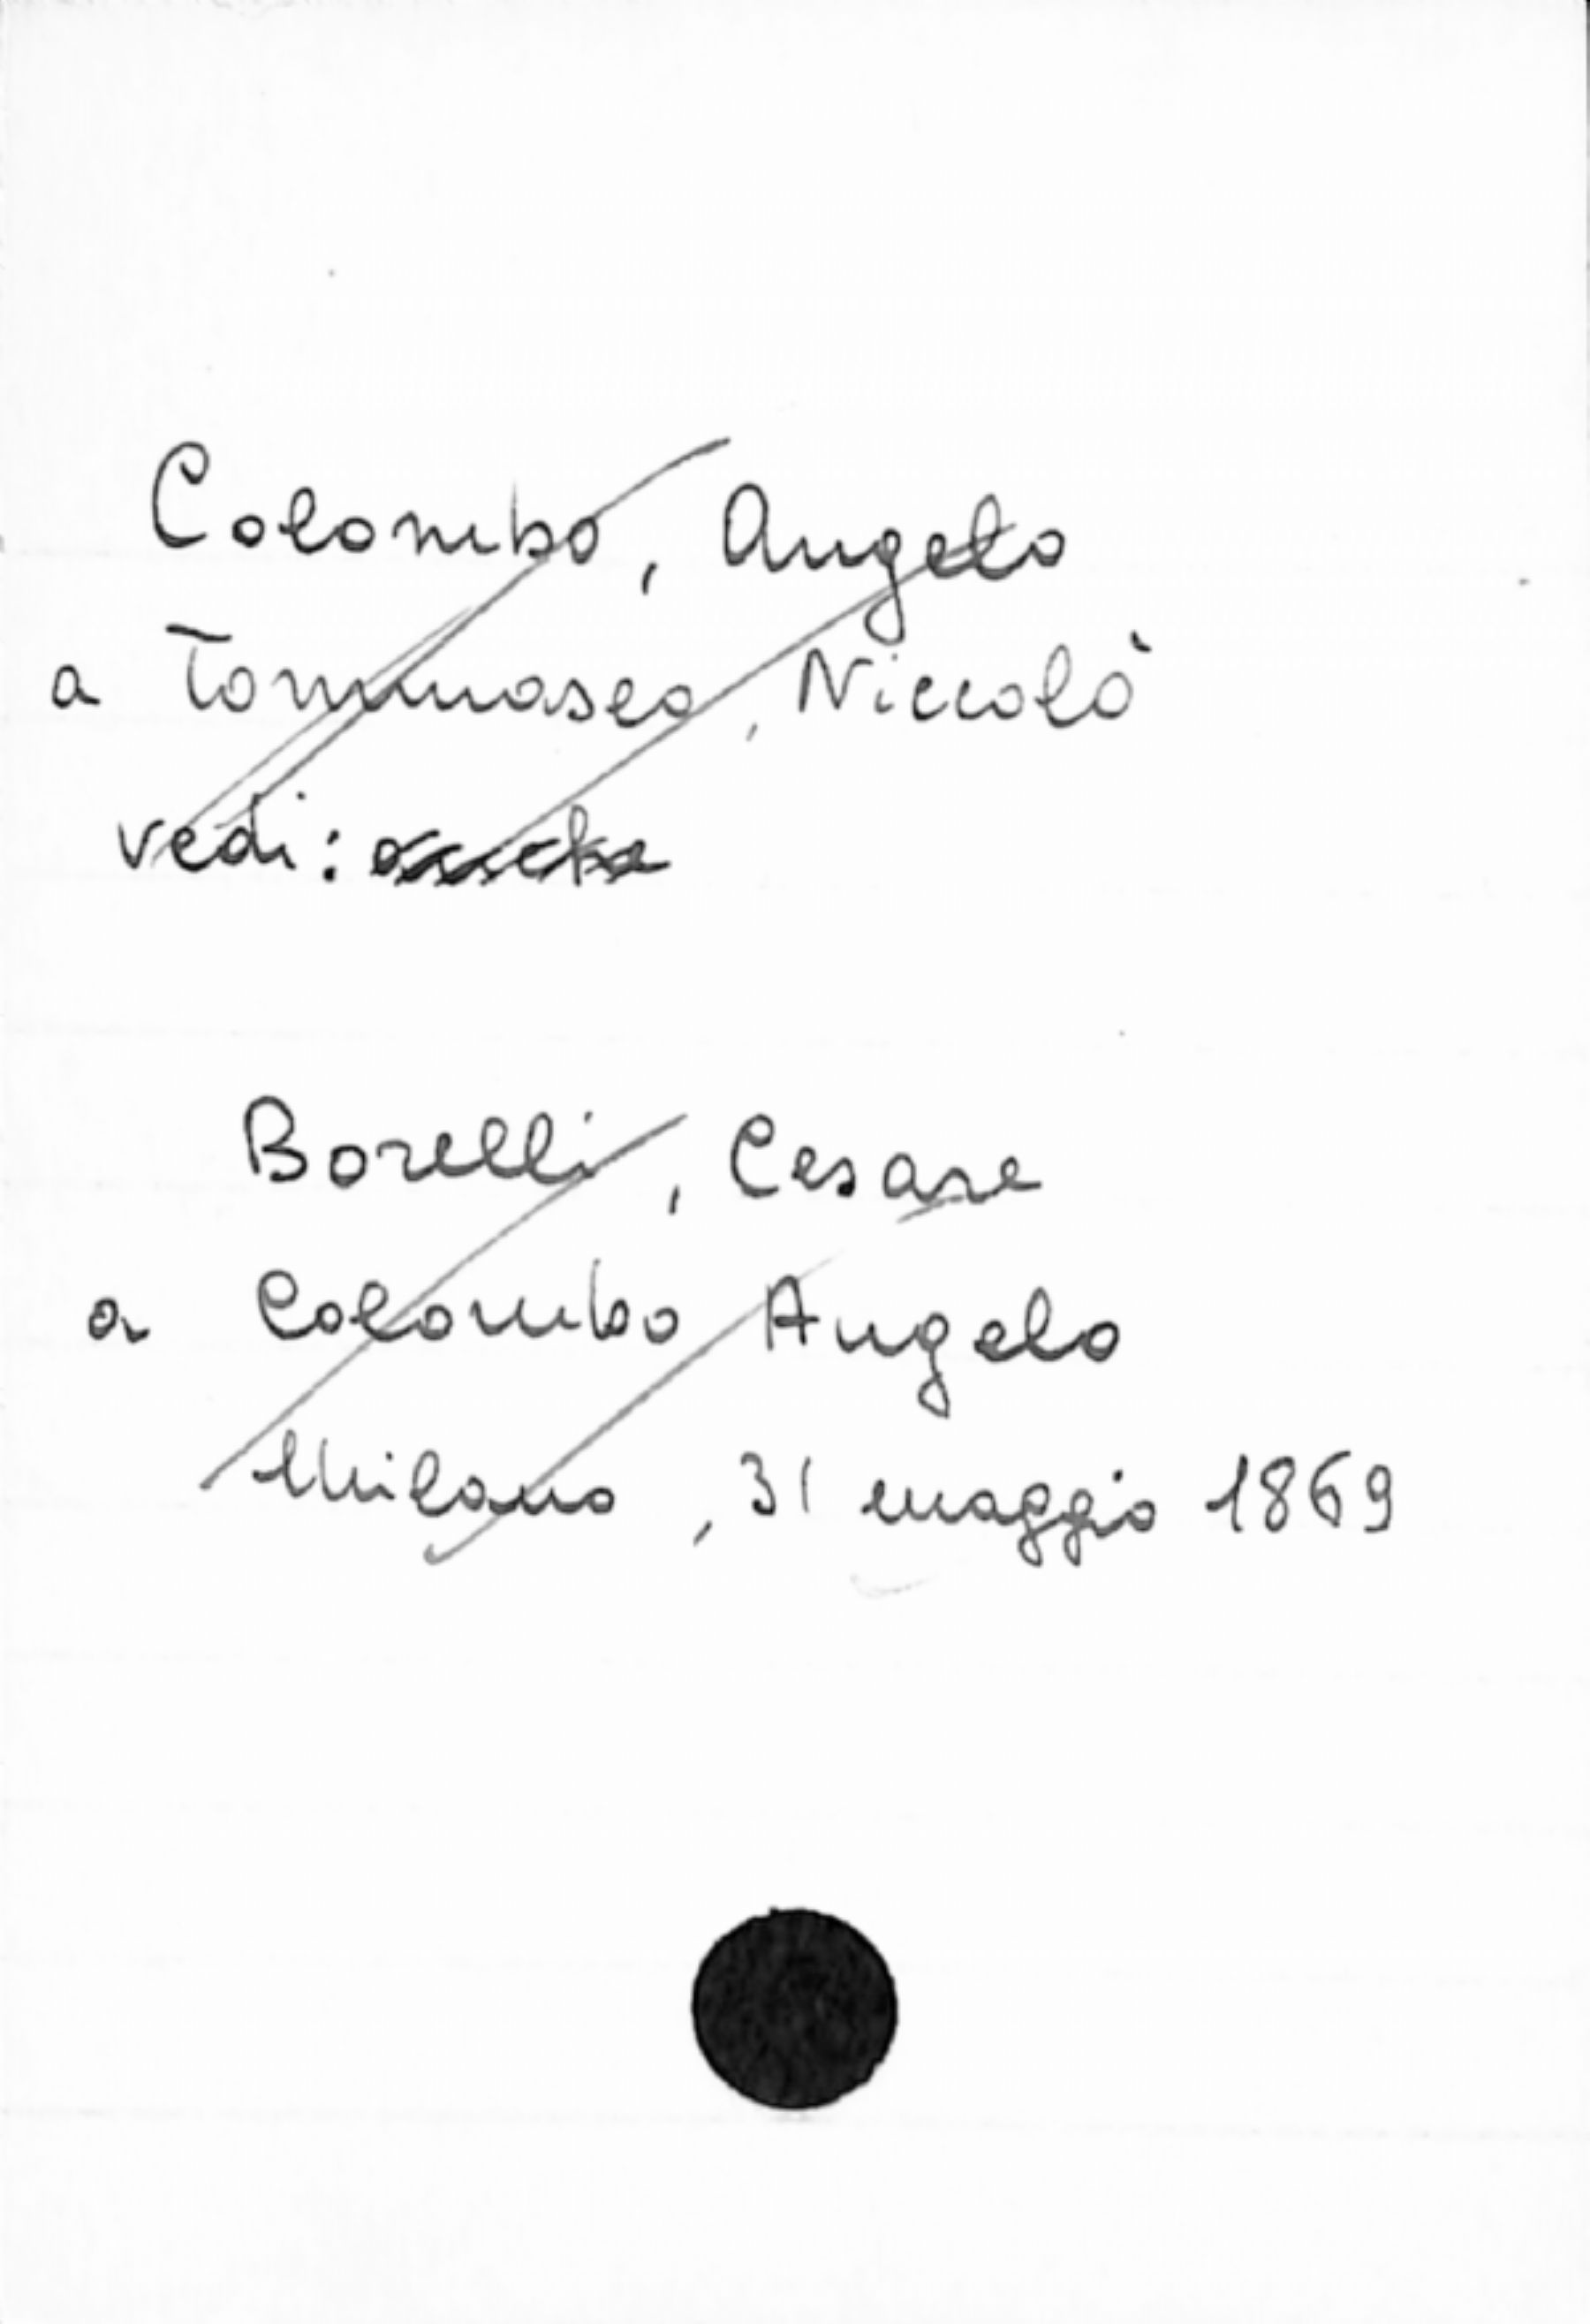 Colombo, Angelo
a Tommaseo, Niccolò
vedi: anche
Borelli, Cesare
a Colombo Angelo
Milano, 31 maggio 1869